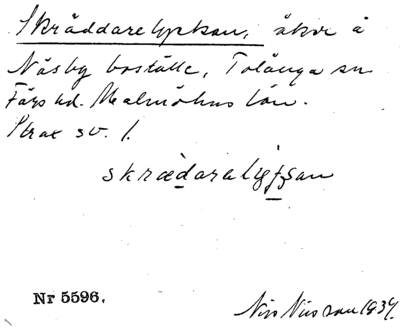 Skräddarelyckan, åker å
Näsby boställe, Tolånga sn
Färs hd. Malmöhus län.
Strax sv. 1.
Nr 5596. Nils Nilsson 1934.